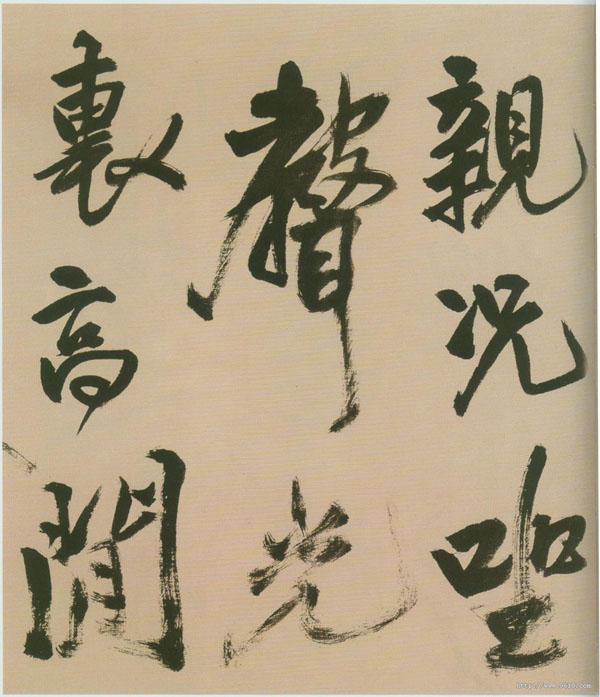 親況坐
聲光
裏高閒
http://www.9610.com